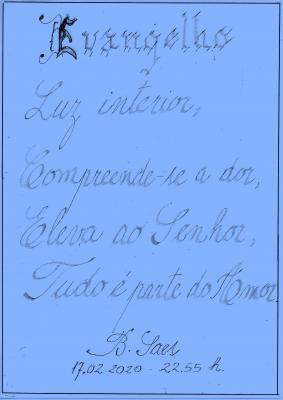 Evangelho
Luz interior,
Compreende-se a dor,
Eleva ao Senhor,
Tudo é parte do Amor.
B. Saes
17.02.2020 - 22.55 h.